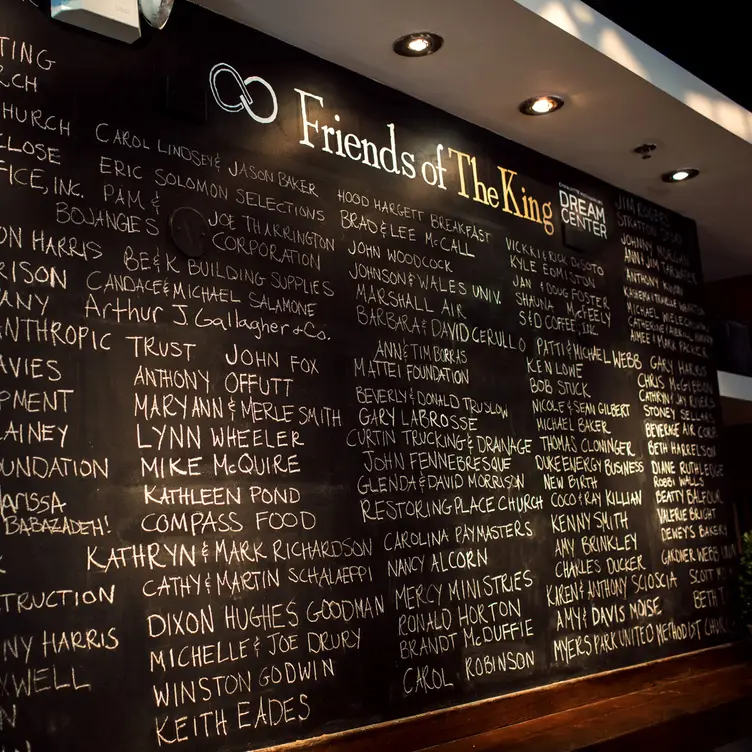 Friends of The King
DREAM
CENTER
TING
RCH
CHURCH
CLOSE
FICE, INC.
ON HARRIS
RISON
PANY
ANTHROPIC
AVIES
PMENT
LAINEY
UNDATION
MARISSA
BABAZADEH!
TRUCTION
NY HARRIS
XWELL
N
CAROL LINDSEY & JASON BAKER
ERIC SOLOMON SELECTIONS
PAM &
BOJANGLES
JOE THARRINGTON
CORPORATION
BE&K BUILDING SUPPLIES
CANDACE & MICHAEL SALAMONE
Arthur J. Gallagher & Co.
TRUST JOHN FOX
ANTHONY OFFUTT
MARY ANN & MERLE SMITH
LYNN WHEELER
MIKE McQUIRE
KATHLEEN POND
COMPASS FOOD
KATHRYN & MARK RICHARDSON
CATHY & MARTIN SCHALAEPPI
DIXON HUGHES GOODMAN
MICHELLE & JOE DRURY
WINSTON GODWIN
KEITH EADES
HOOD HARGETT BREAKFAST
BRAD & LEE McCALL
JOHN WOODCOCK
JOHNSON & WALES UNIV.
MARSHALL AIR
BARBARA & DAVID CERULLO
ANN & TIM BORRAS
MATTEI FOUNDATION
BEVERLY & DONALD TRUSLOW
GARY LABROSSE
CURTIN TRUCKING & DRAINAGE
JOHN FENNEBRESQUE
GLENDA & DAVID MORRISON
RESTORING PLACE CHURCH
CAROLINA PAYMASTERS
NANCY ALCORN
MERCY MINISTRIES
RONALD HORTON
BRANDT McDUFFIE
CAROL ROBINSON
VICKI & RICK DESOTO
KYLE EDMISTON
JAN & DOUG FOSTER
SHAUNA McFEELY
S&D COFFEE, INC
PATTI & MICHAEL WEBB
KEN LOWE
BOB STUCK
NICOLE & SEAN GILBERT
MICHAEL BAKER
THOMAS CLONINGER
DUKE ENERGY BUSINESS
NEW BIRTH
COCO & RAY KILLIAN
KENNY SMITH
AMY BRINKLEY
CHARLES DUCKER
KIREN & ANTHONY SCIOSCIA
AMY & DAVIS NOISE
MYERS PARK UNITED METHODIST
JIM ROGERS
STRATTON
JOHNNY
ANTHONY
MICHAEL
GARY HARRIS
CHRIS McGIBBON
CATHRYN & JAY RIVERS
STONEY SELLARS
BEVERAGE AIR CORP
BETH HARRELSON
DIANE RUTHLEDGE
ROBBI WALLS
BEATTY BALFOUR
VALERIE BRIGHT
DEWEY'S BAKERY
GARDNER WEBB
SCOTT
BETH T